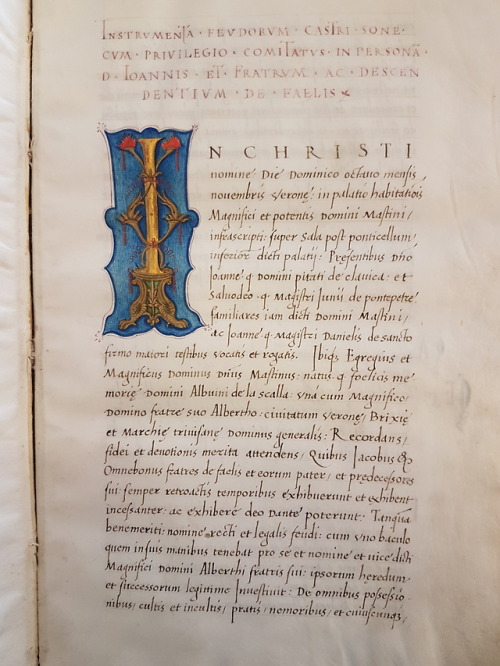 INSTRVMENTA · FEVDORVM · CASTRI · SONE ·
CVM · PRIVILEGIO · COMITATVS · IN PERSONĀ ·
D · IOANNIS · ET · FRATRVM · AC · DESCEN
DENTIVM · DE · FAELIS
IN CHRISTI
nomine: Die Dominico octauo mensis,
nouembris Veronę: in palatio habitatiōis
Magnifici et potentis Domini Mastini,
infrascripti: super Sala post ponticellum,
inferiori dicti palatij: Presentibus Dño
Joanne q Domini pitati de clauica: et
Saluodeo q. Magistri Junii de pontepetre,
familiares iam dicti Domini Mastini,
ac Joanne q Magistri Danielis de sancto
firmo maiori testibus vocatis et rogatis. Ibiq Egregius et
Magnificus Dominus Dñus Mastinus: natus q foelicis me
morię Domini Albuini de la scalla: vna cum Magnifico,
Domino fratre suo Albertho: ciuitatum veronę, Brixię
et Marchię triuisanę Dominus generalis: Recordans,
fidei et deuotionis merita attendens, Quibus Jacobus &
Omnebonus fratres de faelis et eorum pater, et predecessores
sui: semper retroactis temporibus exhibuerunt et exhibent
incessanter: ac exhibere deo Dante poterunt: Tanquā
benemeriti: nomine recti et legalis feudi: cum vno baculo
quem in suis manibus tenebat pro se et nomine et vice dicti
Magnifici Domini Alberthi fratris sui: ipsorum heredum,
et successorum legitime Inuestiuit: De omnibus possessio-
nibus, cultis et incultis, pratis, nemoribus, et cuiuscunq,